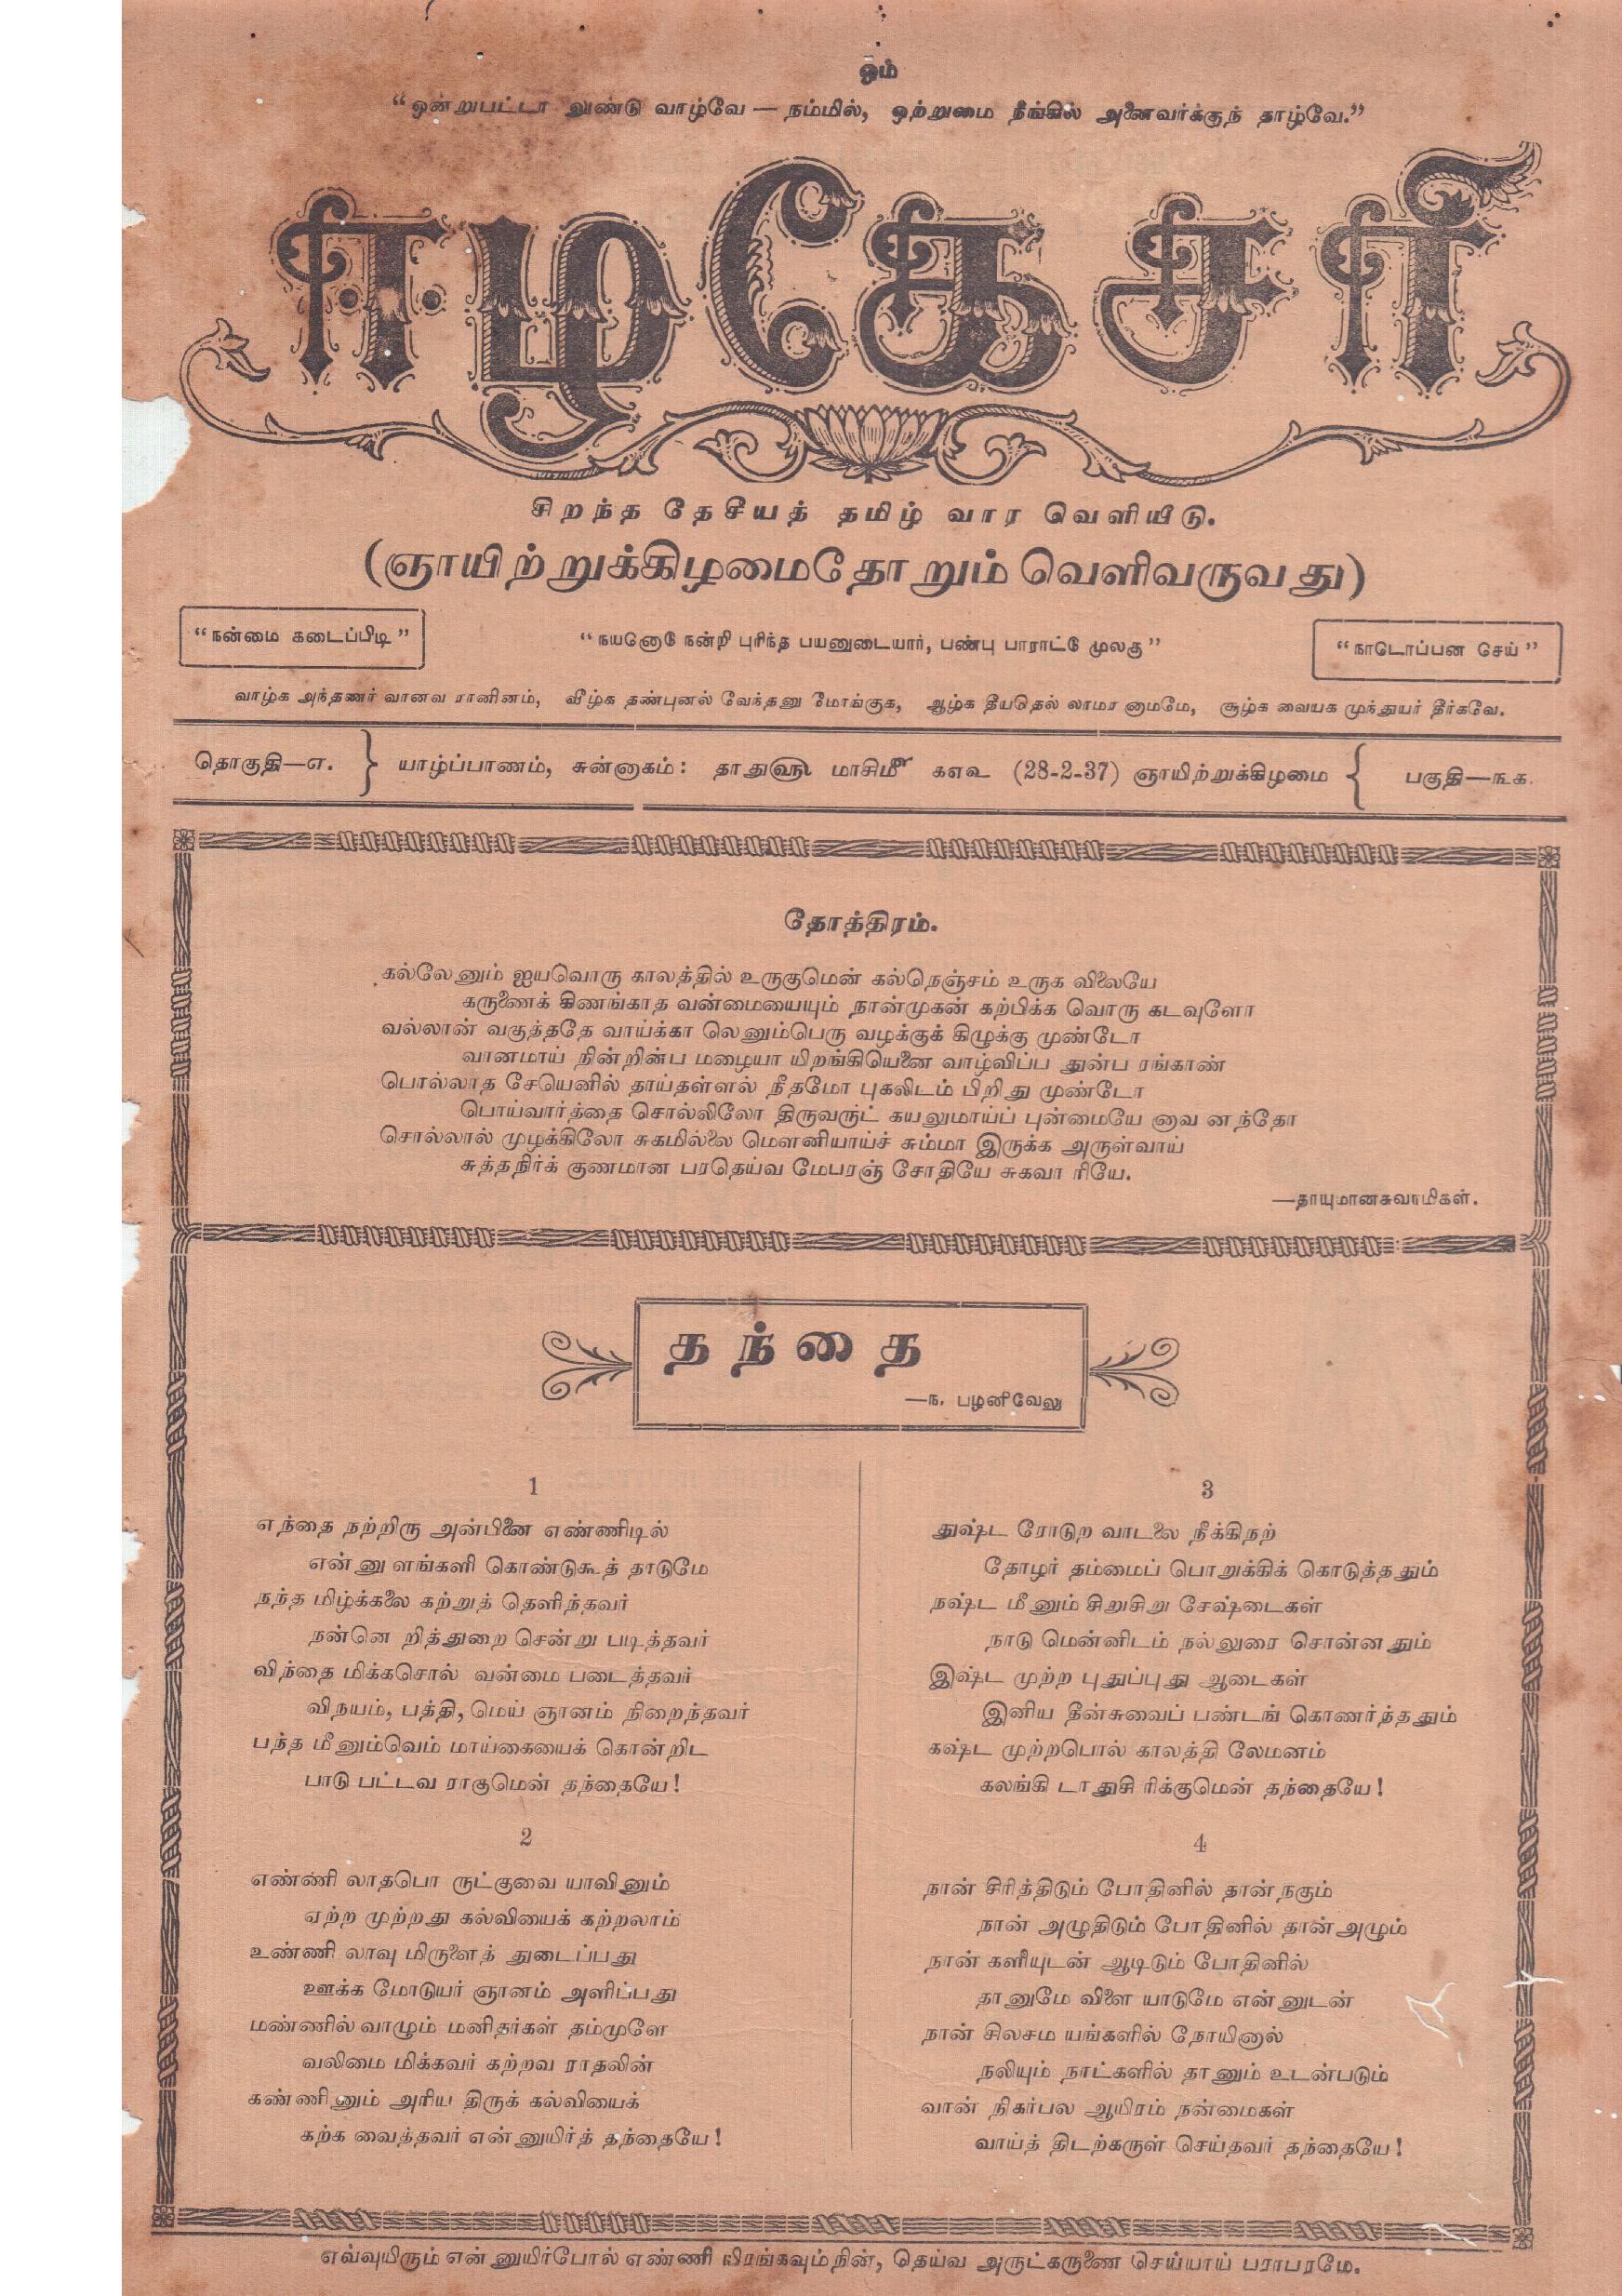 ஓம்
“ஒன்றுபட்டா லுண்டு வாழ்வே — நம்மில், ஒற்றுமை நீங்கில் அனைவர்க்குந் தாழ்வே.”
ஈழகேசரி
சிறந்த தேசீயத் தமிழ் வார வெளியீடு.
(ஞாயிற்றுக்கிழமைதோறும் வெளிவருவது)
“நன்மை கடைப்பிடி”
“நயனொடு நன்றி புரிந்த பயனுடையார், பண்பு பாராட்டு முலகு”
“நாடொப்பன செய்”
வாழ்க அந்தணர் வானவ ரானினம், வீழ்க தண்புனல் வேந்தனு மோங்குக, ஆழ்க தீயதெல் லாமர னாமமே, சூழ்க வையக முந்துயர் தீர்கவே.
தொகுதி—எ. } யாழ்ப்பாணம், சுன்னாகம்: தாது௵ மாசிமீ கஎஉ (28-2-37) ஞாயிற்றுக்கிழமை { பகுதி—௩௧.
தோத்திரம்.
கல்லேனும் ஐயவொரு காலத்தில் உருகுமென் கல்நெஞ்சம் உருக விலையே
கருணைக் கிணங்காத வன்மையையும் நான்முகன் கற்பிக்க வொரு கடவுளோ
வல்லான் வகுத்ததே வாய்க்கா லெனும்பெரு வழக்குக் கிழுக்கு முண்டோ
வானமாய் நின்றின்ப மழையா யிறங்கியெனை வாழ்விப்ப துன்ப ரங்காண்
பொல்லாத சேயெனில் தாய்தள்ளல் நீதமோ புகலிடம் பிறிது முண்டோ
பொய்வார்த்தை சொல்லிலோ திருவருட் கயலுமாய்ப் புன்மையே னாவ னந்தோ
சொல்லால் முழக்கிலோ சுகமில்லை மௌனியாய்ச் சும்மா இருக்க அருள்வாய்
சுத்தநிர்க் குணமான பரதெய்வ மேபரஞ் சோதியே சுகவா ரியே.
—தாயுமானசுவாமிகள்.
தந்தை
—ந. பழனிவேலு
1
எந்தை நற்றிரு அன்பினை எண்ணிடில்
என்னு ளங்களி கொண்டுகூத் தாடுமே
நந்த மிழ்க்கலை கற்றுத் தெளிந்தவர்
நன்னெ றித்துறை சென்று படித்தவர்
விந்தை மிக்கசொல் வன்மை படைத்தவர்
விநயம், பத்தி, மெய் ஞானம் நிறைந்தவர்
பந்த மீனும்வெம் மாய்கையைக் கொன்றிட
பாடு பட்டவ ராகுமென் தந்தையே!
2
எண்ணி லாதபொ ருட்குவை யாவினும்
ஏற்ற முற்றது கல்வியைக் கற்றலாம்
உண்ணி லாவு மிருளைத் துடைப்பது
ஊக்க மோடுயர் ஞானம் அளிப்பது
மண்ணில் வாழும் மனிதர்கள் தம்முளே
வலிமை மிக்கவர் கற்றவ ராதலின்
கண்ணினும் அரிய திருக் கல்வியைக்
கற்க வைத்தவர் என்னுயிர்த் தந்தையே!
3
துஷ்ட ரோடுற வாடலை நீக்கிநற்
தோழர் தம்மைப் பொறுக்கிக் கொடுத்ததும்
நஷ்ட மீனும் சிறுசிறு சேஷ்டைகள்
நாடு மென்னிடம் நல்லுரை சொன்னதும்
இஷ்ட முற்ற புதுப்புது ஆடைகள்
இனிய தீன்சுவைப் பண்டங் கொணர்த்ததும்
கஷ்ட முற்றபொல் காலத்தி லேமனம்
கலங்கி டாதுசி ரிக்குமென் தந்தையே!
4
நான் சிரித்திடும் போதினில் தான் நகும்
நான் அழுதிடும் போதினில் தான் அழும்
நான் களியுடன் ஆடிடும் போதினில்
தானுமே விளை யாடுமே என்னுடன்
நான் சிலசம யங்களில் நோயினால்
நலியும் நாட்களில் தானும் உடன்படும்
வான் நிகர்பல ஆயிரம் நன்மைகள்
வாய்த் திடற்கருள் செய்தவர் தந்தையே!
எவ்வுயிரும் என்னுயிர்போல் எண்ணி யிரங்கவும் நின், தெய்வ அருட்கருணை செய்யாய் பராபரமே.